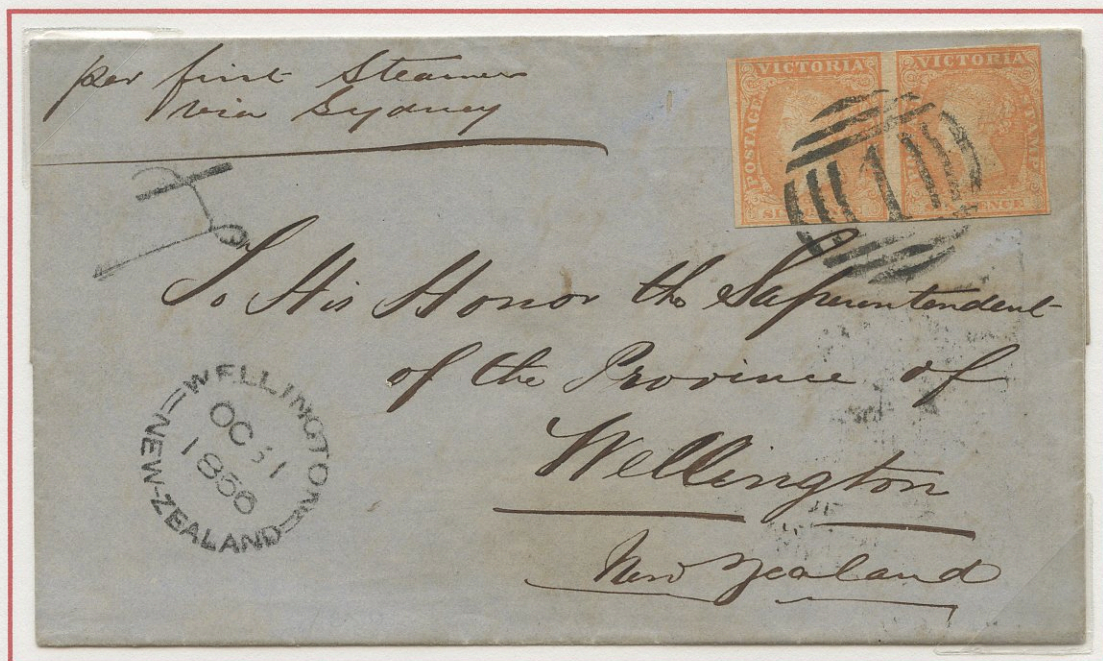 per first Steamer
via Sydney
VICTORIA
POSTAGE
SI
VICTORIA
STAMP
PENCE
1
To His Honor the Superintendent
of the Province of
Wellington
New Zealand
WELLINGTON
OC 31
1856
NEW-ZEALAND